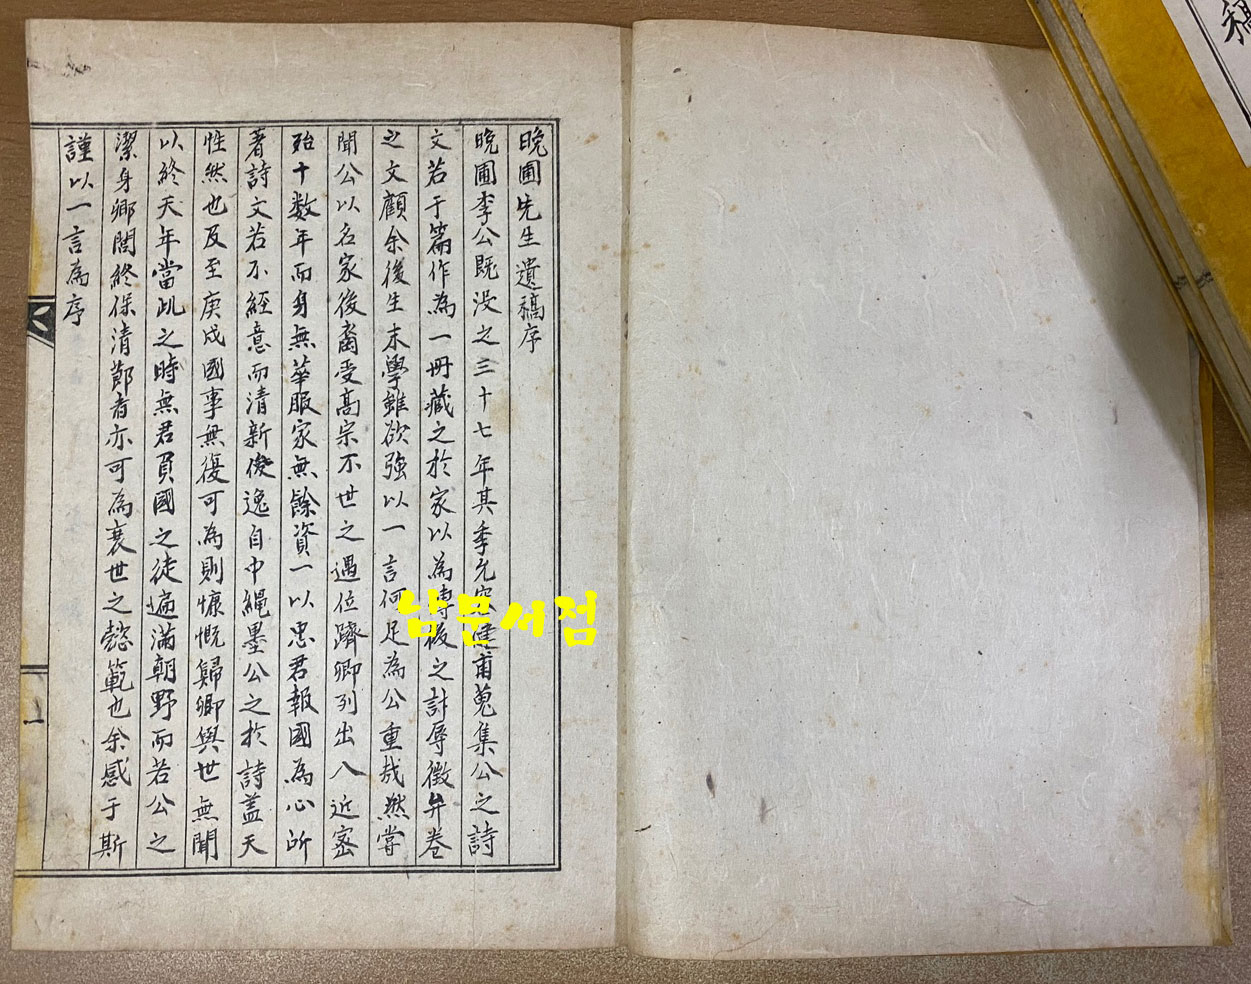 晩圃先生遺稿序
晩圃李公旣沒之三十七年其季允宓健甫蒐集公之詩
文若于篇作為一冊藏之於家以為傳後之計辱徵弁卷
之文顧余後生末學雖欲強以一言何足為公重哉然嘗
聞公以名家後裔受高宗不世之遇位躋卿列出入近密
殆十數年而身無華服家無餘資一以忠君報國為心所
著詩文若不經意而清新俊逸自中繩墨公之於詩盖天
性然也及至庚戌國事無復可為則慷慨歸鄉與世無聞
以終天年當此之時無君負國之徒遍滿朝野而若公之
潔身鄉閭終保清節者亦可為衰世之懿範也余感于斯
謹以一言為序
一
稿
남문서점